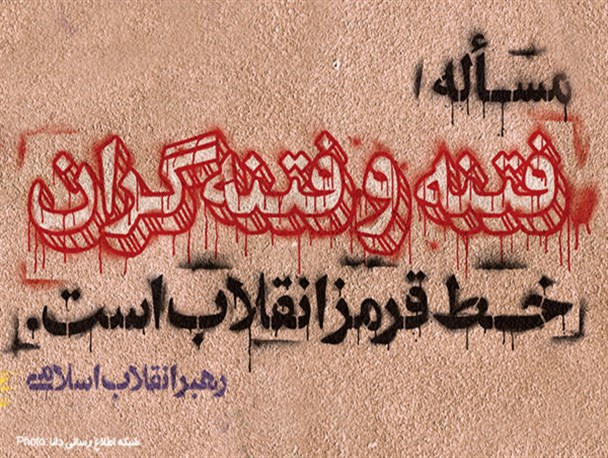 مسأله ا
فتنه و فتنه گران
خط قرمز انقلاب است.
رهبر انقلاب اسلامی
Photo: شبکه اطلاع رسانی دانا